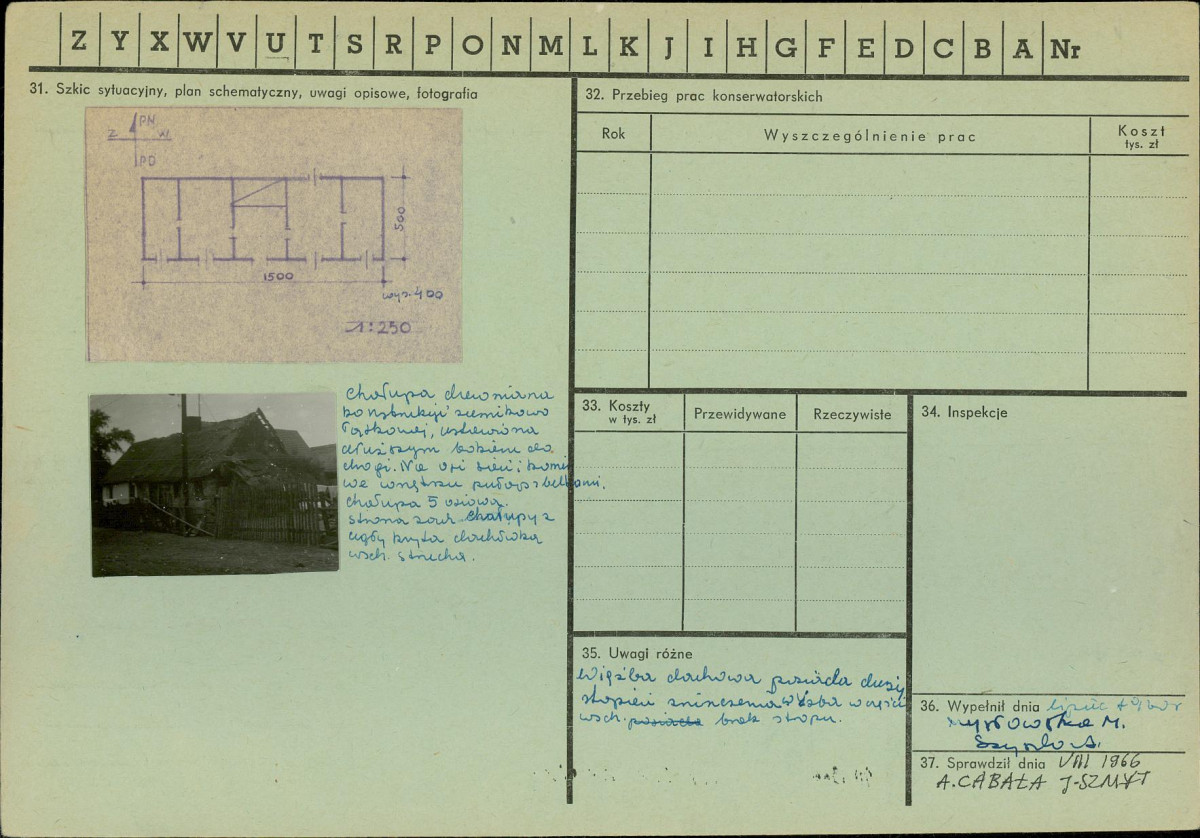 Z Y X W V U T S R P O N M L K J I H G F E D C B A Nr
31. Szkic sytuacyjny, plan schematyczny, uwagi opisowe, fotografia
PN
Z W
PD
500
1500
wys. 400
1:250
Chałupa drewniana
konstrukcji sumikowo
łątkowej, ustawiona
dłuższym bokiem do
drogi. Na osi sień i komin
we wnętrzu pułap z belkami.
Chałupa 5 osiowa.
strona zach chałupy z
cegły kryta dachówka
wsch. strzecha.
32. Przebieg prac konserwatorskich
Rok
Wyszczególnienie prac
Koszt
tys. zł
33. Koszty
w tys. zł
Przewidywane
Rzeczywiste
34. Inspekcje
35. Uwagi różne
Więźba dachowa posiada duży
stopień zniszczenia w części
wsch. posiada brak stropu.
36. Wypełnił dnia lipiec
M.
37. Sprawdził dnia VIII 1966
A. CABAŁA J-SZMYT